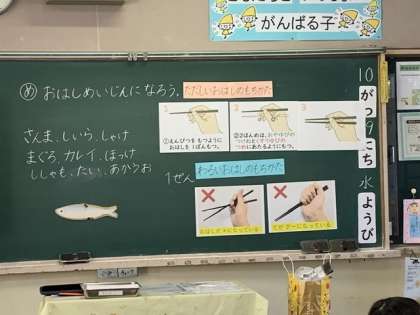 がんばる子
め おはしめいじんになろう。
ただしいおはしのもちかた
さんま、しいら、しゃけ
まぐろ、カレイ、ほっけ
ししゃも、たい、あかうお
1
①えんぴつをもつように
おはしを1ぽんもつ。
2
②2ほんめは、おやゆびの
つけねとくすりゆびの
つめにあたるようにもつ。
3
1ぜん
わるいおはしのもちかた
おはしが×になっている
てがグーになっている
10
がつ
9
にち
水
ようび